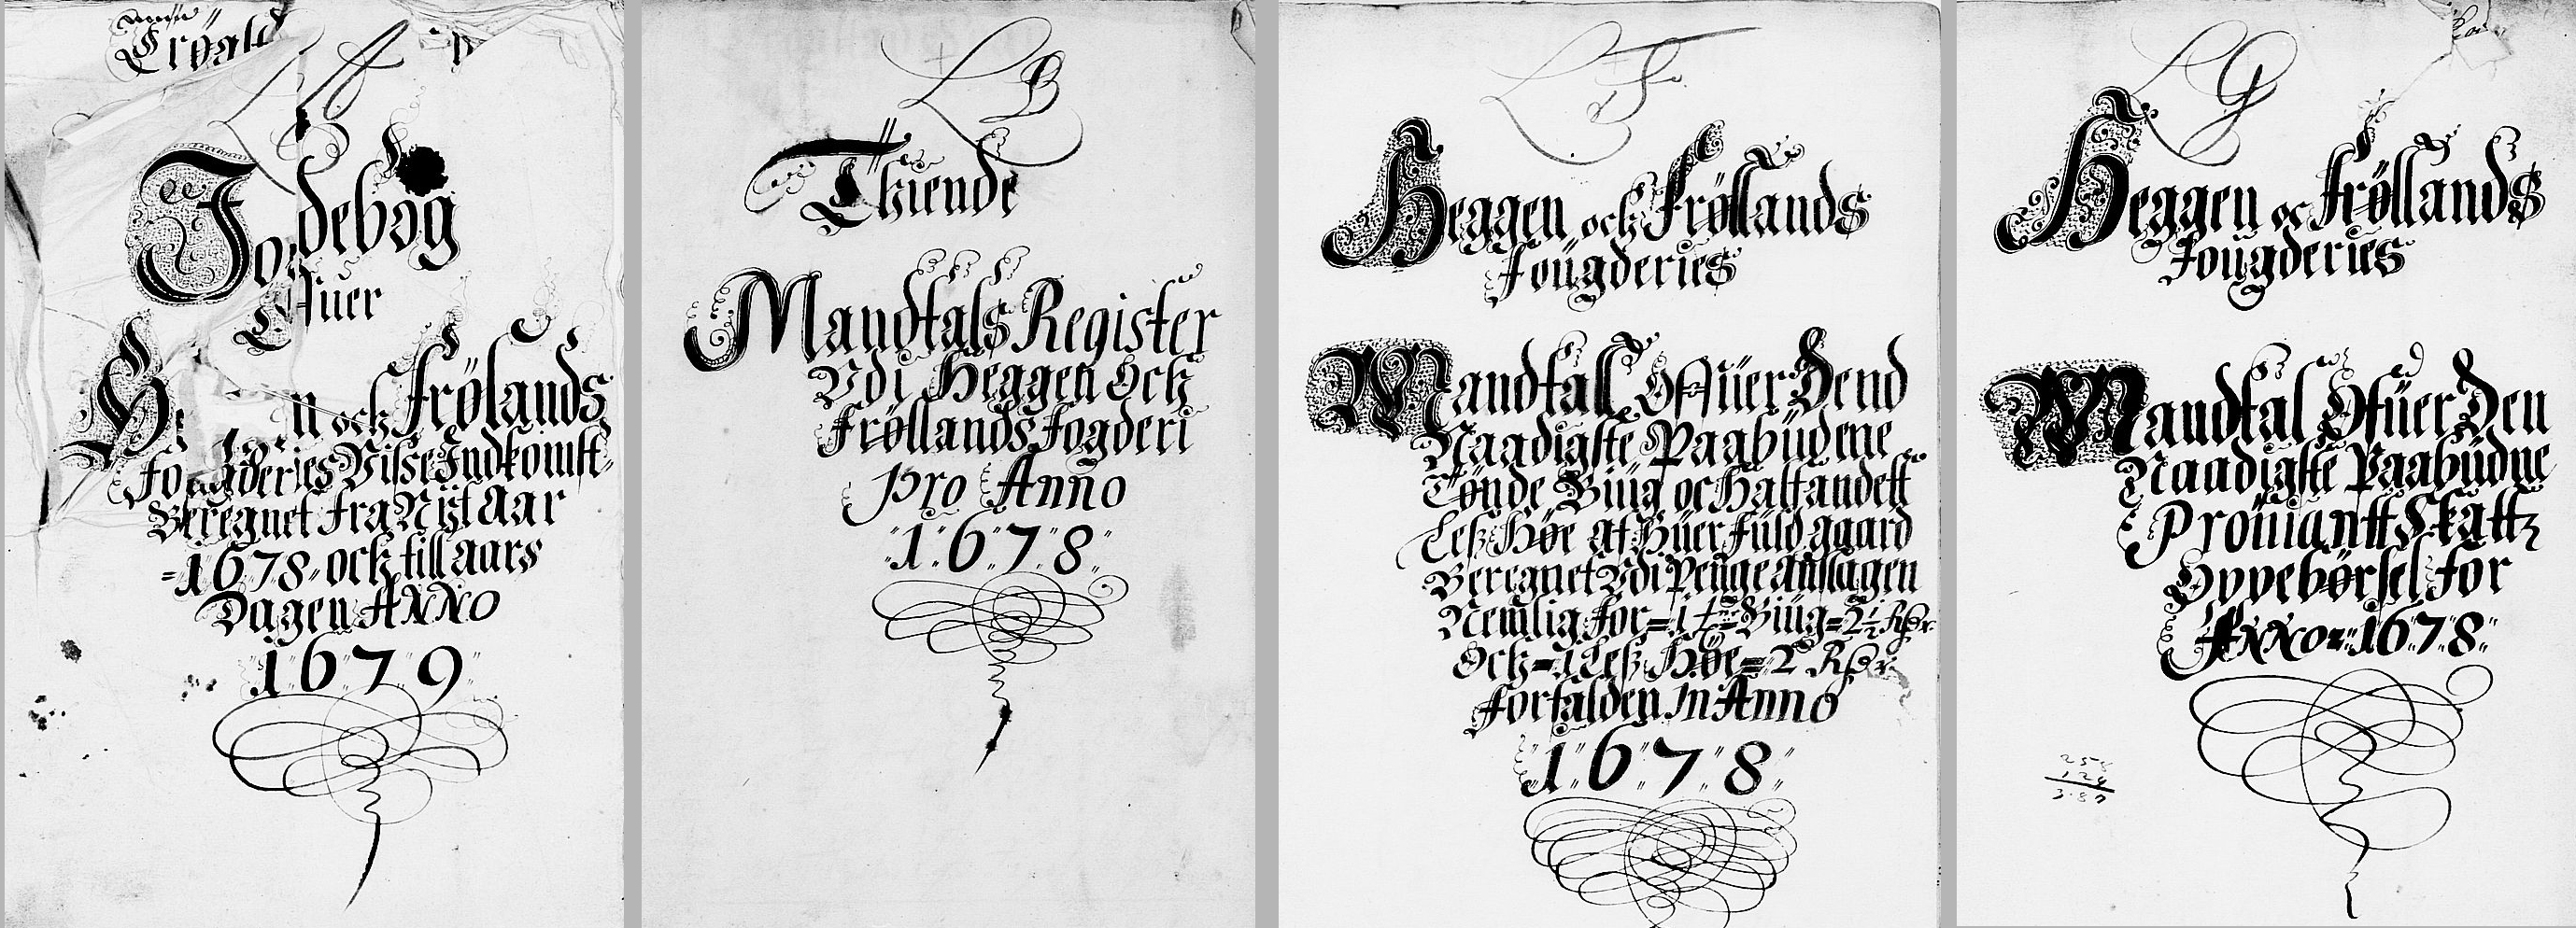 L A
Jordebog
Offuer
n och Frølands
fougderies Visse Indkomst
Beregnet fra Nÿt aar
1678 och till aars
Dagen ANNO
1679
L B
Thiende
Mandtals Register
Vdi Heggen Och
Frøllands fogderi
pro Anno
1678
L F
Heggen och Frøllands
Fougderies
Mandtall Offuer Dend
Naadigste Paabudene
Tønde Biug oc Halfandett
Less Høe af Huer fuld gaard
Beregnet Vdi Penge anslagen
Nemlig for=1 t= Biüg=2½ Rdr
Och=1 Less Høe=2 Rdr
forfalden In Anno
1678
L G
Heggen oc Frøllands
Fougderies
Mandtal Ofuer Den
Naadigste Paabudne
Proviantt Skattz
Oppebørsel for
ANNO=1678